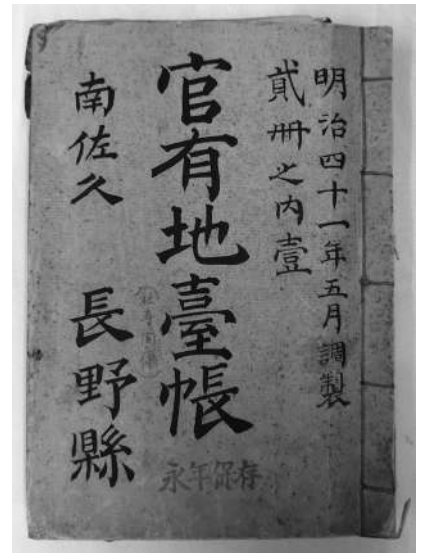 明治四十一年五月調製
貳冊之内壹
官有地臺帳
南佐久 長野縣
永年保存